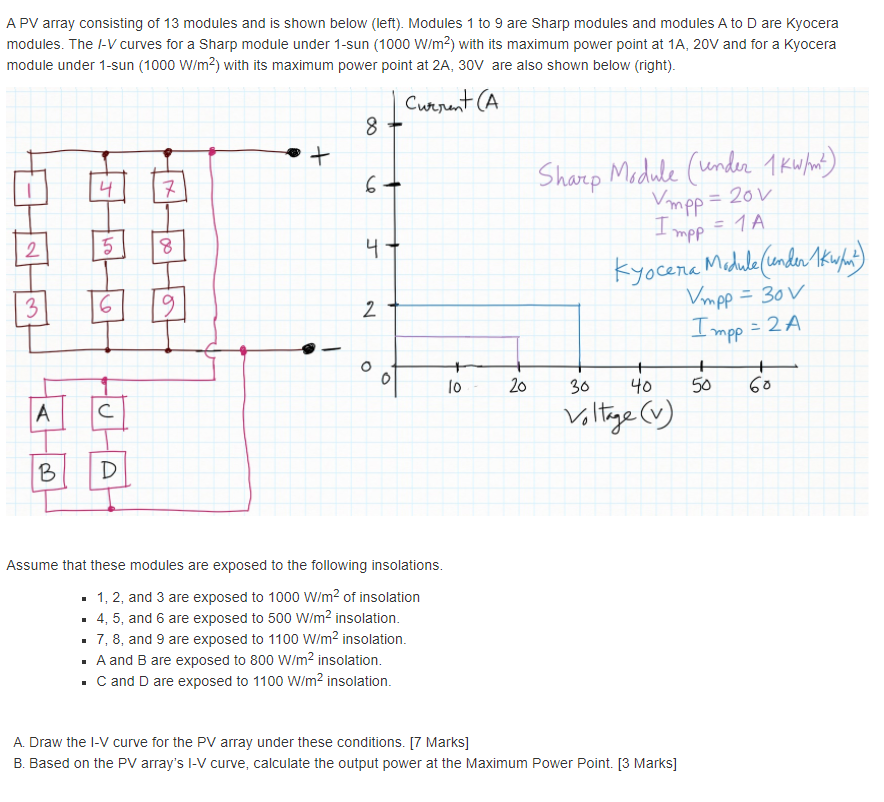 A PV array consisting of 13 modules and is shown below (left). Modules 1 to 9 are Sharp modules and modules A to D are Kyocera
modules. The I-V curves for a Sharp module under 1-sun (1000 W/m²) with its maximum power point at 1A, 20V and for a Kyocera
module under 1-sun (1000 W/m²) with its maximum power point at 2A, 30V are also shown below (right).
Current (A
8
6
4
2
0
0
10
20
30
40
50
60
Voltage (V)
Sharp Module (under 1KW/m²)
Vmpp = 20V
Impp = 1A
Kyocera Module (under 1KW/m²)
Vmpp = 30V
Impp = 2A
+
-
1
4
7
2
5
8
3
6
9
A
C
B
D
Assume that these modules are exposed to the following insolations.
▪ 1, 2, and 3 are exposed to 1000 W/m² of insolation
▪ 4, 5, and 6 are exposed to 500 W/m² insolation.
▪ 7, 8, and 9 are exposed to 1100 W/m² insolation.
▪ A and B are exposed to 800 W/m² insolation.
▪ C and D are exposed to 1100 W/m² insolation.
A. Draw the I-V curve for the PV array under these conditions. [7 Marks]
B. Based on the PV array's I-V curve, calculate the output power at the Maximum Power Point. [3 Marks]